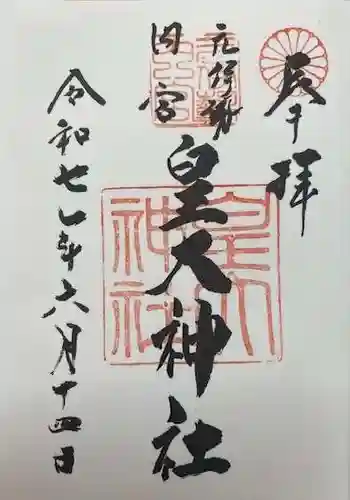 奉拝
元伊勢
内宮
皇大神社
皇大
神社
令和七年六月十四日